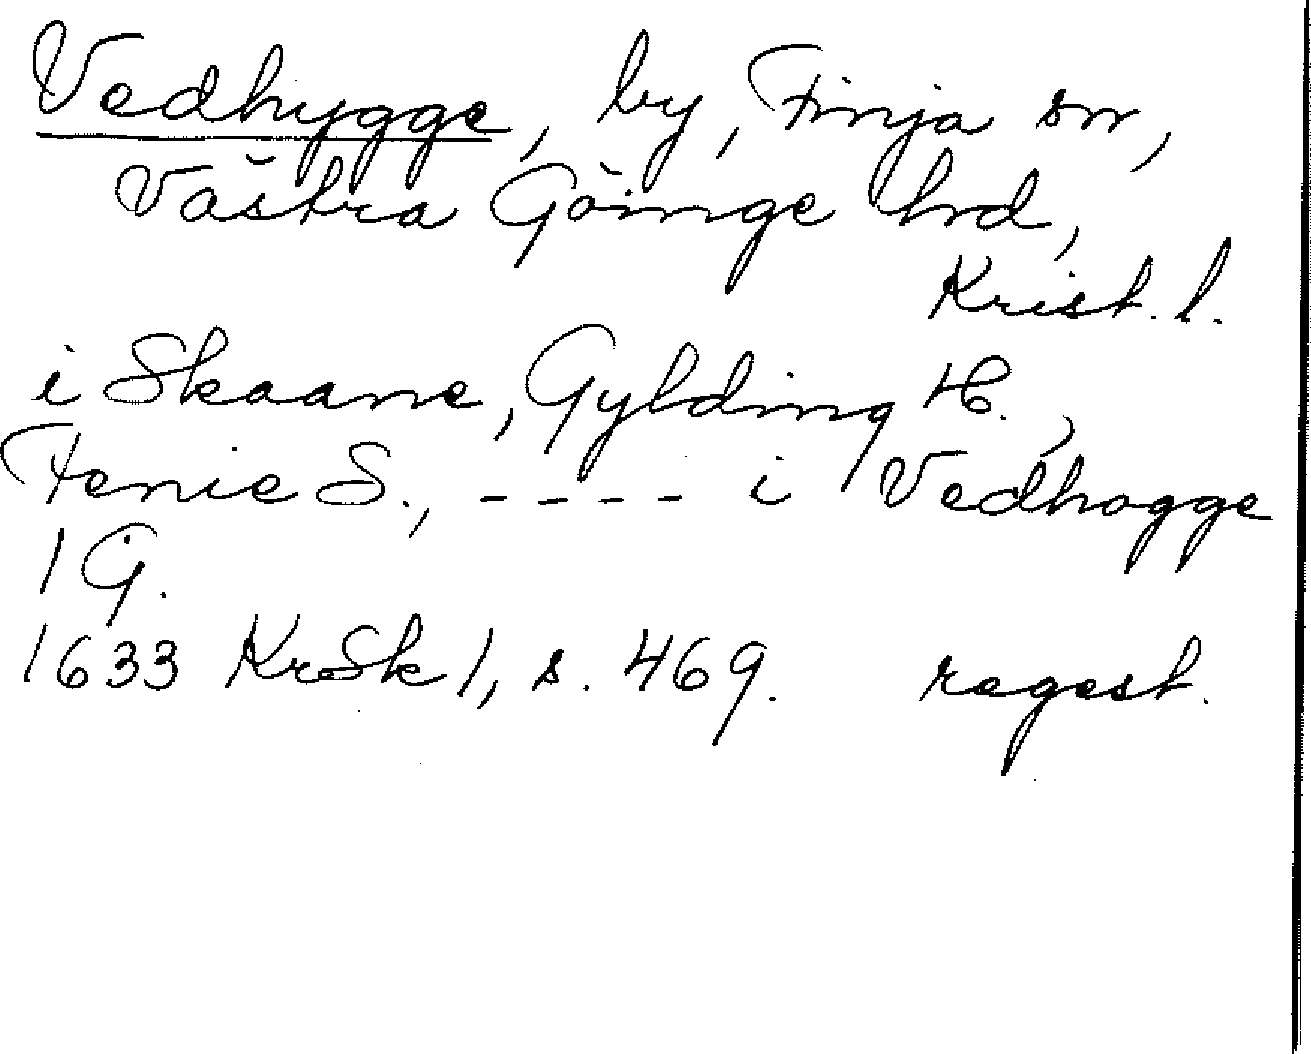 Vedhygge, by, Finja sn,
Västra Göinge hrd,
Krist. l.
i Skaane, Gylding H.,
Fenie S., ---- i Vedhogge
1 G.
1633 KrSk 1, s. 469. regest.